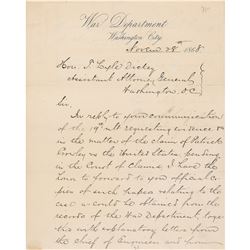 War Department
Washington City
Novem 28th 1868
Hon. T. Lyle Dickey
Assistant Attorney General
Washington D.C.
Sir.
In reply to your communication
of the 19th ult requesting evidence &c
in the matter of the claim of Patrick
vs the United States pending
in the Court of Claims I have the
honor to forward to you official cop-
ies of such papers relating to the
case as could be obtained from the
records of the War Department, toge-
ther with explanatory letters from
the Chief of Engineers and from